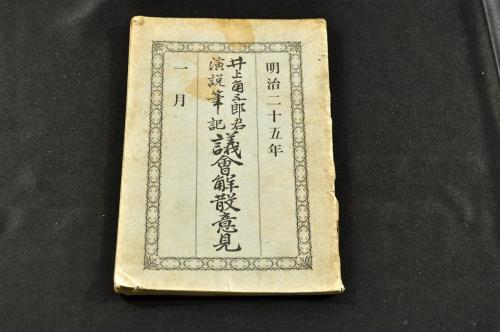 明治二十五年
井上角五郎君
演説筆記
議會解散意見
一月